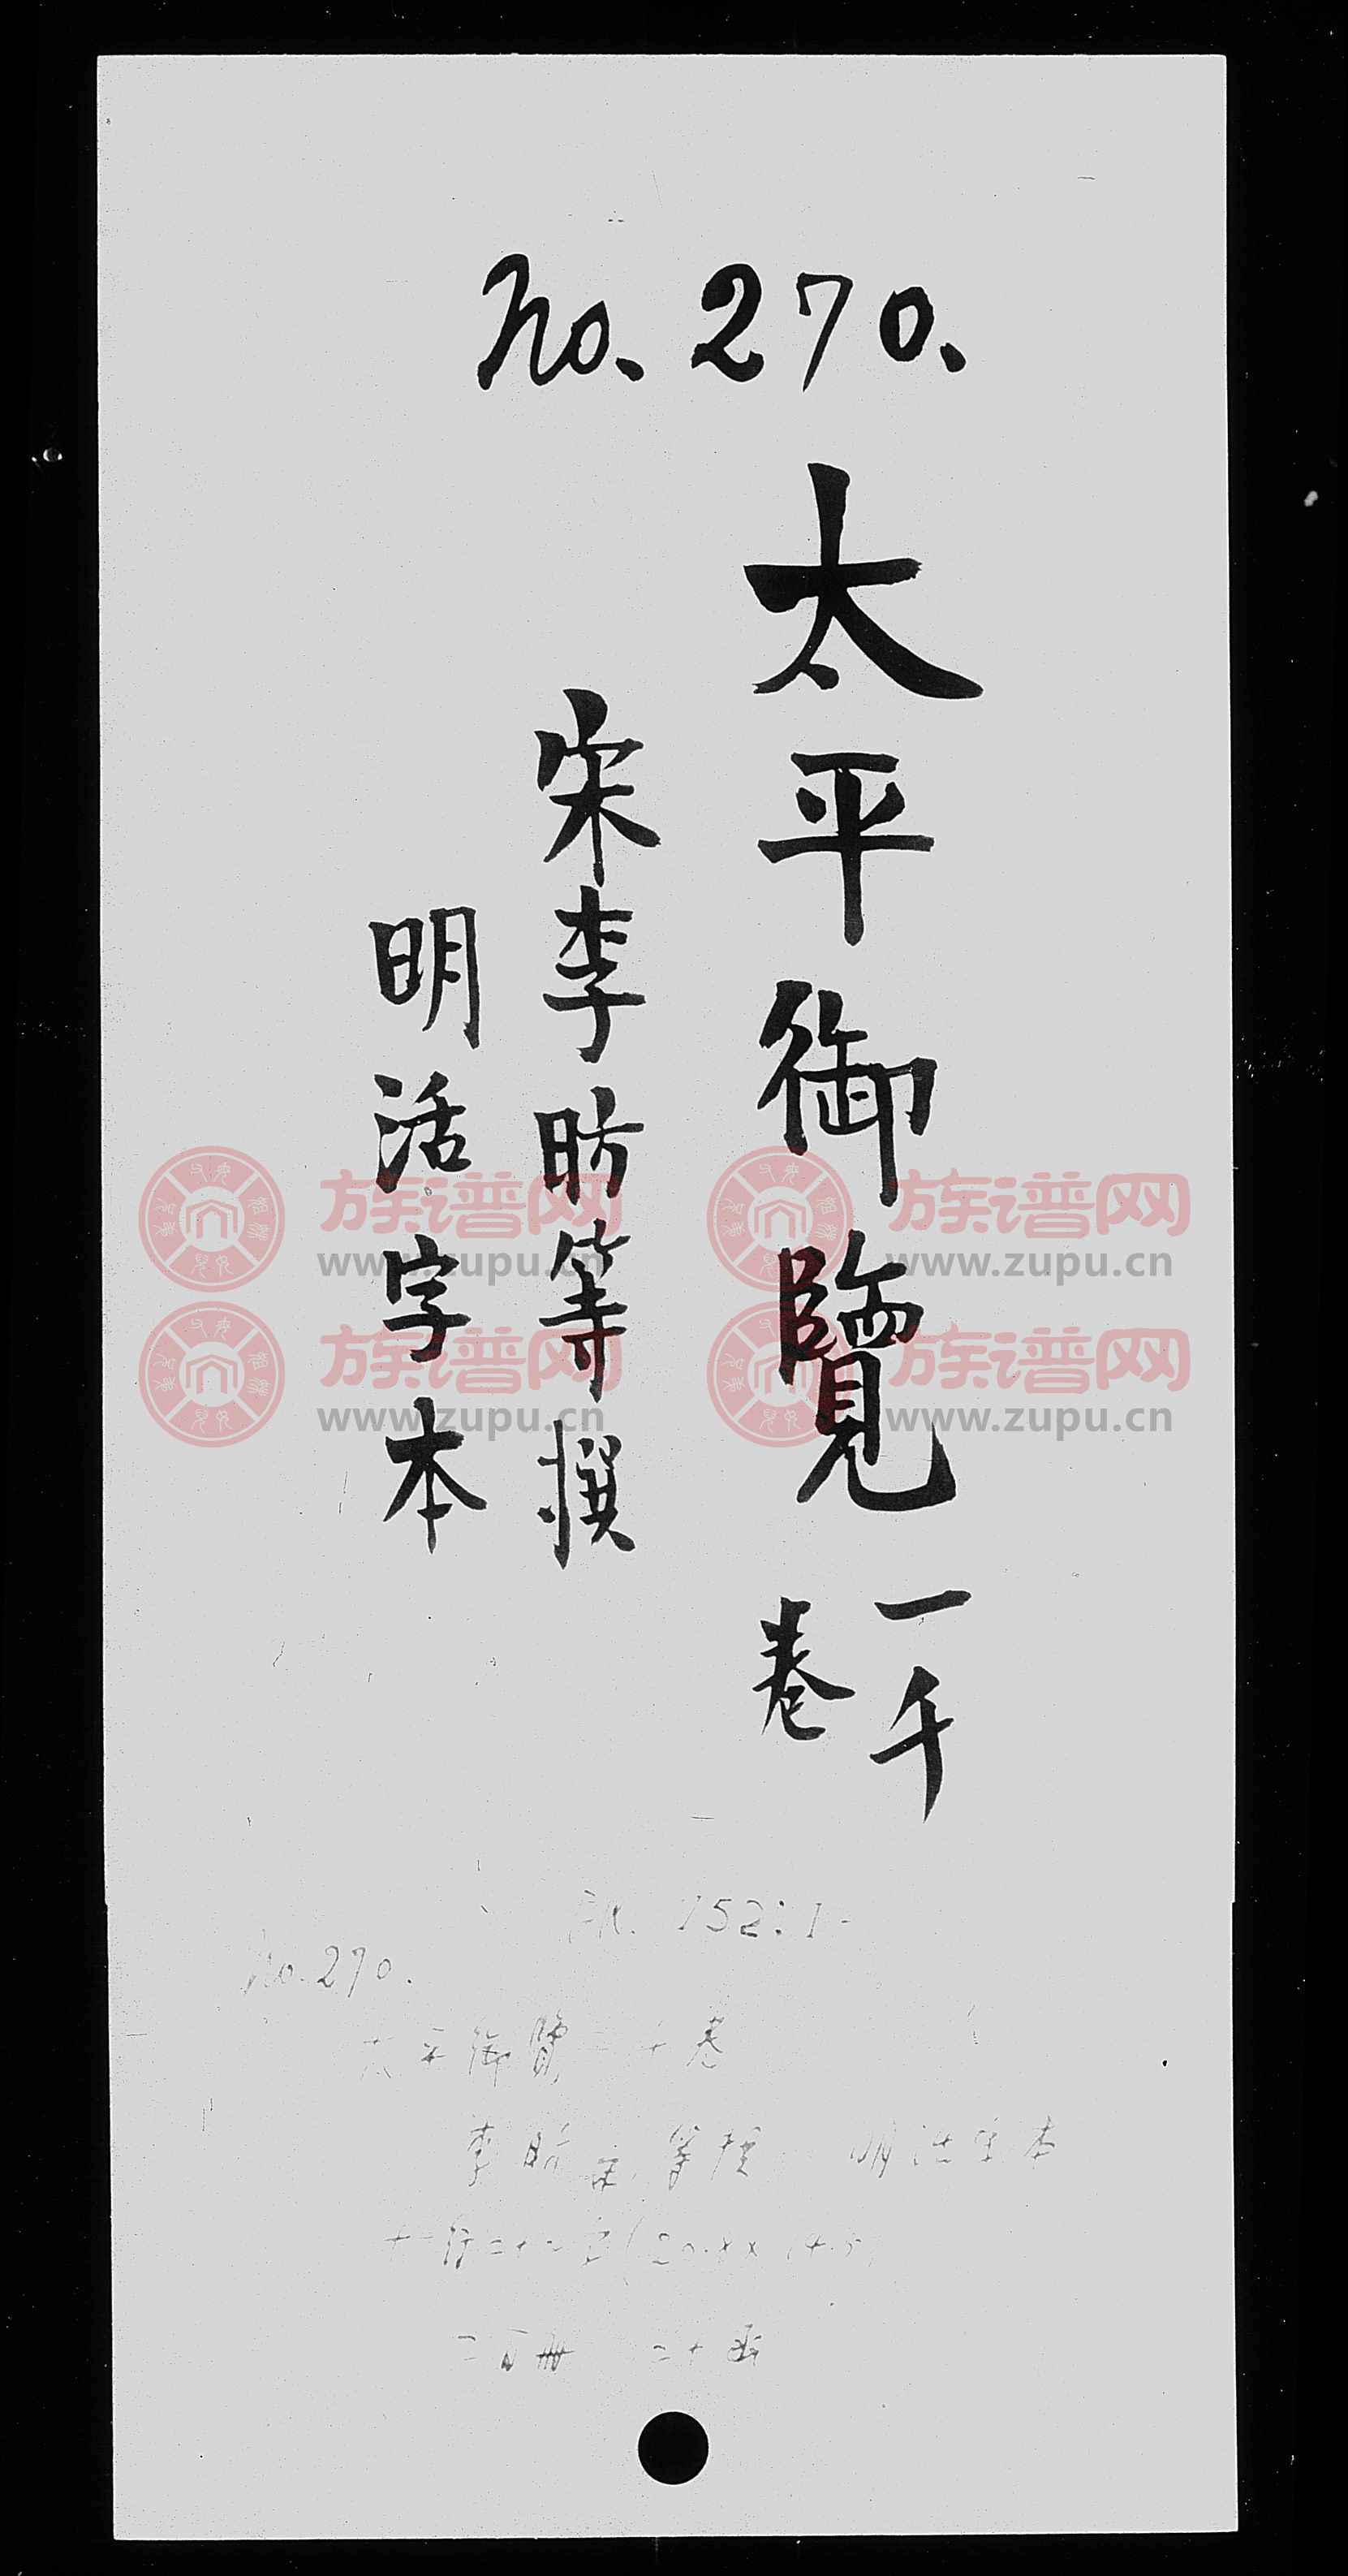 no. 270.
太平御覽 一千卷
宋李昉等撰
明活字本
752:1-
no. 270.
太平御覽一千卷
李昉 等撰 明活字本
二百冊 二十函
族谱网 族谱网
www.zupu.cn www.zupu.cn
族谱网 族谱网
www.zupu.cn www.zupu.cn